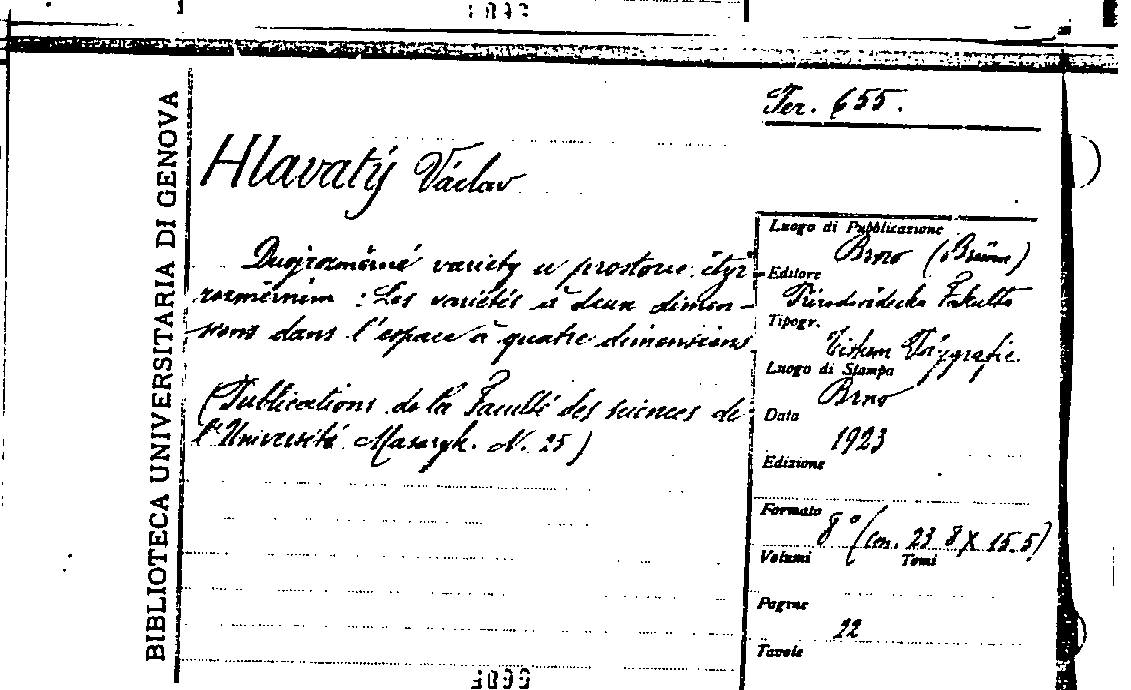 BIBLIOTECA UNIVERSITARIA DI GENOVA
Ter. 655.
Hlavatý Václav
Dvojrozměrné variety v prostoru čtyř-
rozměrném : Les variétés à deux dimen-
sions dans l'espace à quatre dimensions
(Publications de la Faculté des sciences de
l'Université Masaryk. N. 25)
Luogo di Pubblicazione
Brno (Brünn)
Editore
Přírodovědecká Fakulta
Tipogr.
Tiskem Typografie
Luogo di Stampa
Brno
Data
1923
Edizione
Formato
8° (cm. 23.8 X 15.5)
Volumi Tomi
Pagine
22
Tavole